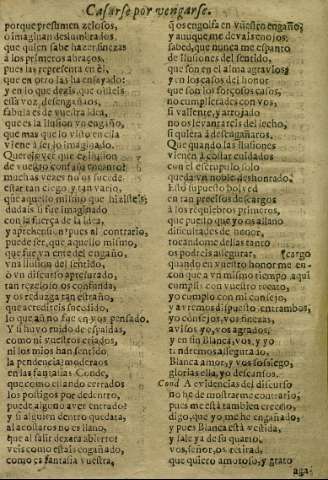 Casarse por vengarse.
porque presumen zelosos,
o imaginan deslumbrados
que quien sabe hazer finezas
a los primeros abraços,
pues las representa en él,
que en otro las ha ensayado:
y en lo que dezis, que oisteis
essa voz, desengañaos,
fabula es de vuestra idea,
que es la ilusion vn engaño,
que mas que lo visto en ella
viene a ser lo imaginado.
Quereis ver que es ilusion
de vuestro confuso
muchas vezes no os sucede
estar tan ciego, y tan vario,
que aquello mismo que hizisteis
dudais si fue imaginado
con la fuerça de la idea,
y aprehension? pues al contrario,
puede ser, que aquello mismo,
que fue vn ente del engaño,
vna ilusion del sentido,
ò vn discurso apresurado,
tan rezeloso os confunda,
y os reduzga tan estraño,
que acrediteis sucedido,
lo que aun no fue en vos pensado.
Y si huvo ruido de espaldas,
como ni vuestros criados,
ni los mios han sentido
la pendencia; moderaos
en las fantasias Conde,
que como estando cerrados
los postigos por dedentro,
puede alguno aver entrado?
y si alguien dentro quedara,
al acostaros no es llano,
que al salir dexara abierto?
veis como estais engañado,
como es fantasia vuestra,
q̃ os engolfa en vuestro engaño;
y aunque me deva enojos,
sabed, que nunca me espanto
de ilusiones del sentido,
que son en el alma agravios;
y en los casos del honor
que son los forçosos casos,
no cumplierades con vos,
si valiente, y arrojado
no os levantarais del lecho,
si quiera à desengañaros.
Que quando las ilusiones
vienen à costar cuidados
con el escrupulo solo
queda vn noble deshonrado.
Esto supuesto bolved
en tan precisos descargos
à los requiebros primeros,
que puesto que yo os allano
dificultades de honor,
tocandome dellas tanto
os podreis assegurar, [cargo
quando en vuestro honor me en-
con que a vn mismo tiempo aqui
cumplis con vuestro recato,
yo cumplo con mi consejo,
y avremos dispuesto entrambos,
yo consejos, vos finezas,
avisos yo, vos agrados,
y en fin Blanca, vos, y yo
tendremos assegurado,
Blanca amor, y vos sossiego,
glorias ella, yo descanso.
Cond A evidencias del discurso
no he de mostrarme contrario,
pues me està tambien creeros,
digo, que yo me he engañado,
y pues Blanca està vestida,
y sale ya de su quarto,
vos, señor, os retirad,
que quiero amoroso, y grato
aga-